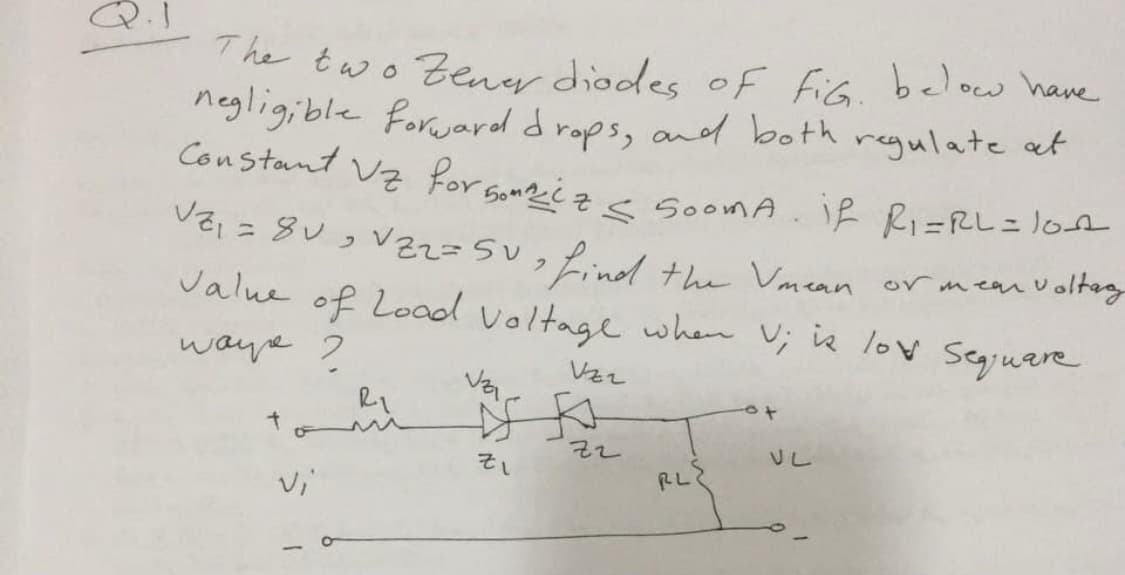 Q.1
The two Zener diodes of FiG. below have
negligible forward drops, and both regulate at
Constant VZ for 50mA ≤ iz ≤ 500mA. if R1=RL=10Ω
VZ1 = 8V, VZ2=5V, find the Vmean or mean voltag
Value of Load voltage when Vi is 10V Sequare
wave ?
VZ1 VZ2
R1
+ o+
Z1 Z2
Vi RL VL
- -